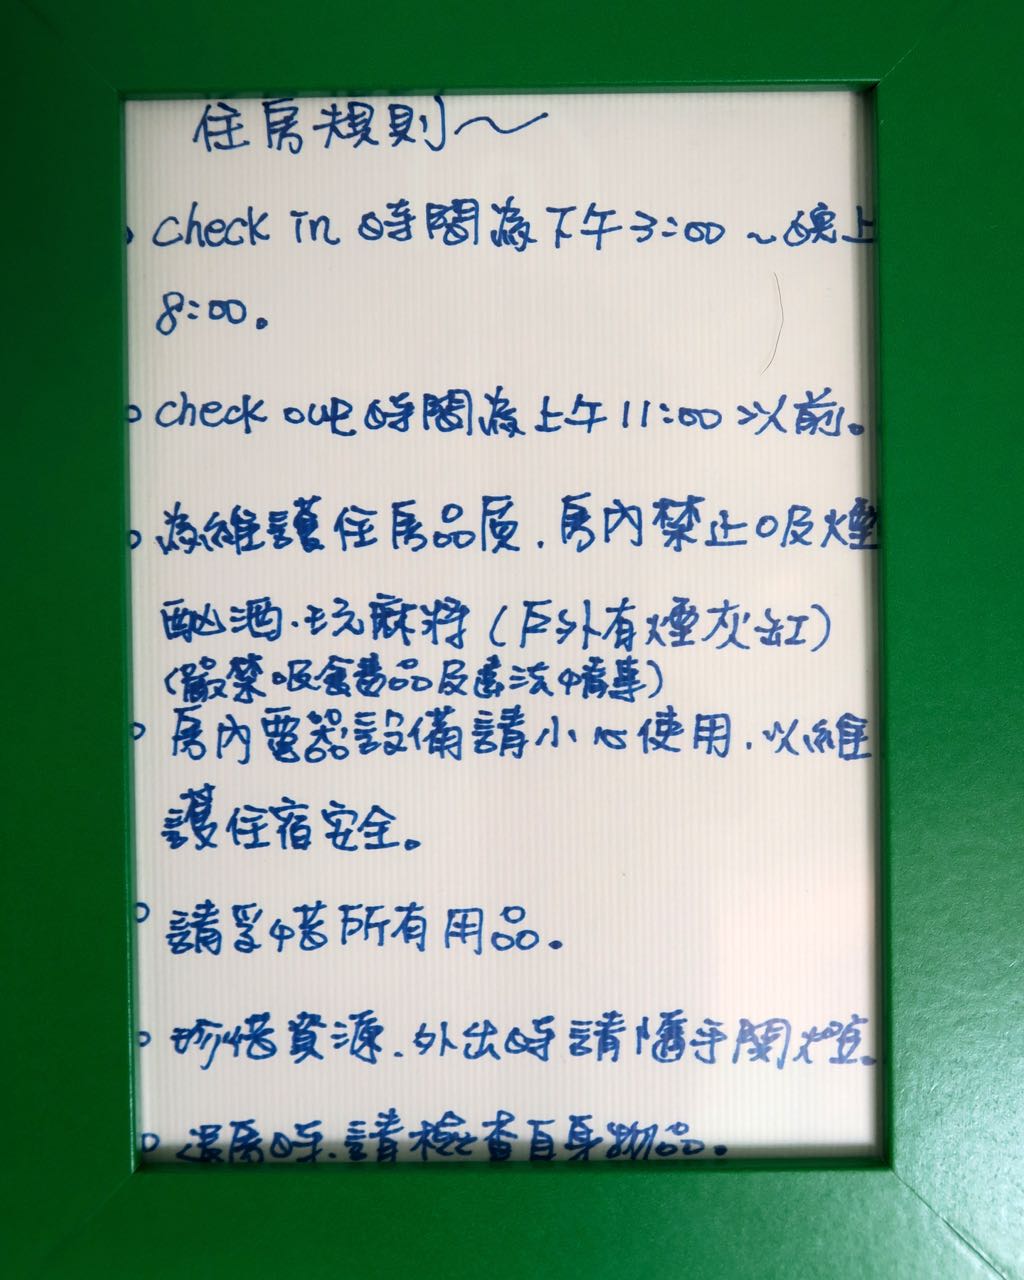 住房規則～
check in 時間為下午3:00 ~晚上
8:00。
check out 時間為上午11:00以前。
為維護住房品質.房內禁止吸煙
酗酒.玩麻將（戶外有煙灰缸）
（嚴禁吸食毒品及違法情事）
房內電器設備請小心使用.以維
護住宿安全。
請愛惜所有用品。
珍惜資源.外出時請隨手關燈.
退房時.請檢查自身物品。